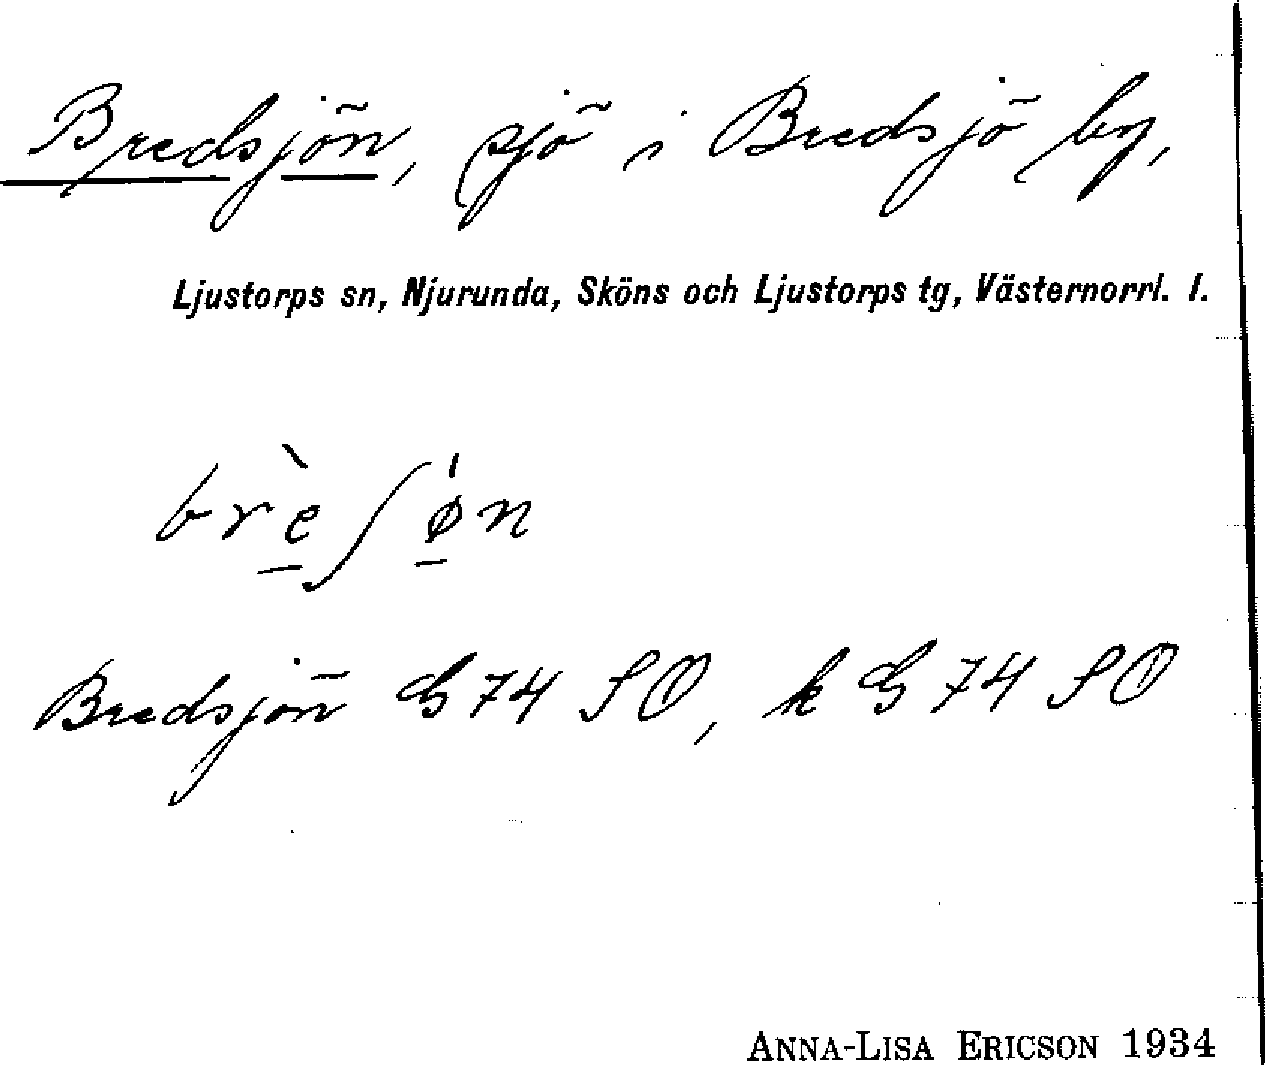 Bredsjön, sjö i Bredsjö by,
Ljustorps sn, Njurunda, Sköns och Ljustorps tg, Västernorrl. l.
brè̱ʃø̱̍n
Bredsjön G 74 SO, k G 74 SO
ANNA-LISA ERICSON 1934